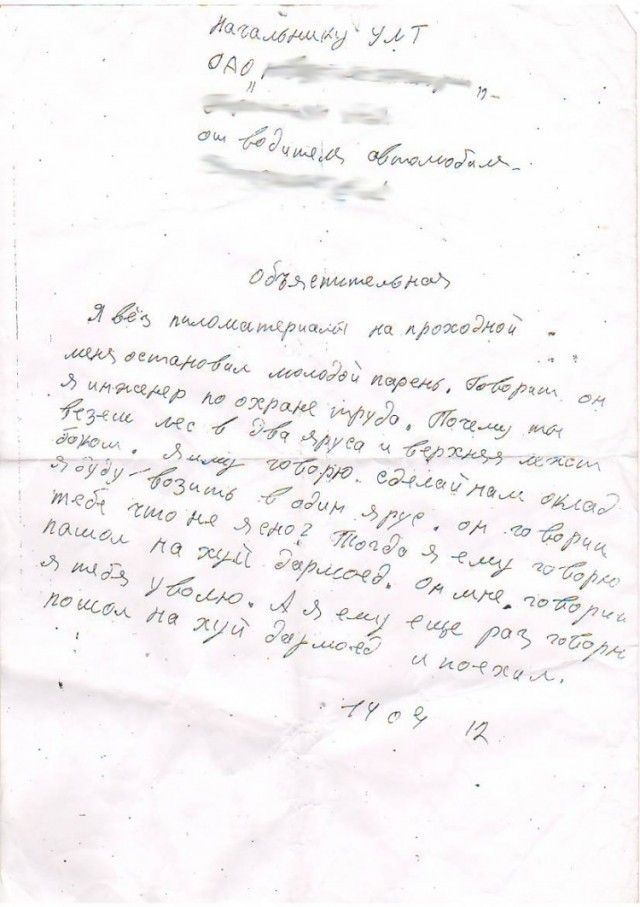 Начальнику УМТ
ОАО "
" –
от водителя автомобиля
Объяснительная
Я вёз пиломатериалы на проходной
меня остановил молодой парень. Говорит он
я инженер по охране труда. Почему ты
везеш лес в два яруса и верхняя лежит
боком. Я иму говорю. сделай нам оклад
я буду возить в один ярус. он говорит
тебе что не ясно? Тогда я ему говорю
пашол на хуй дармоед. он мне. говорит
я тебя уволю. А я ему еще раз говорю
пошол на хуй дармоед и поехал.
14 04 12